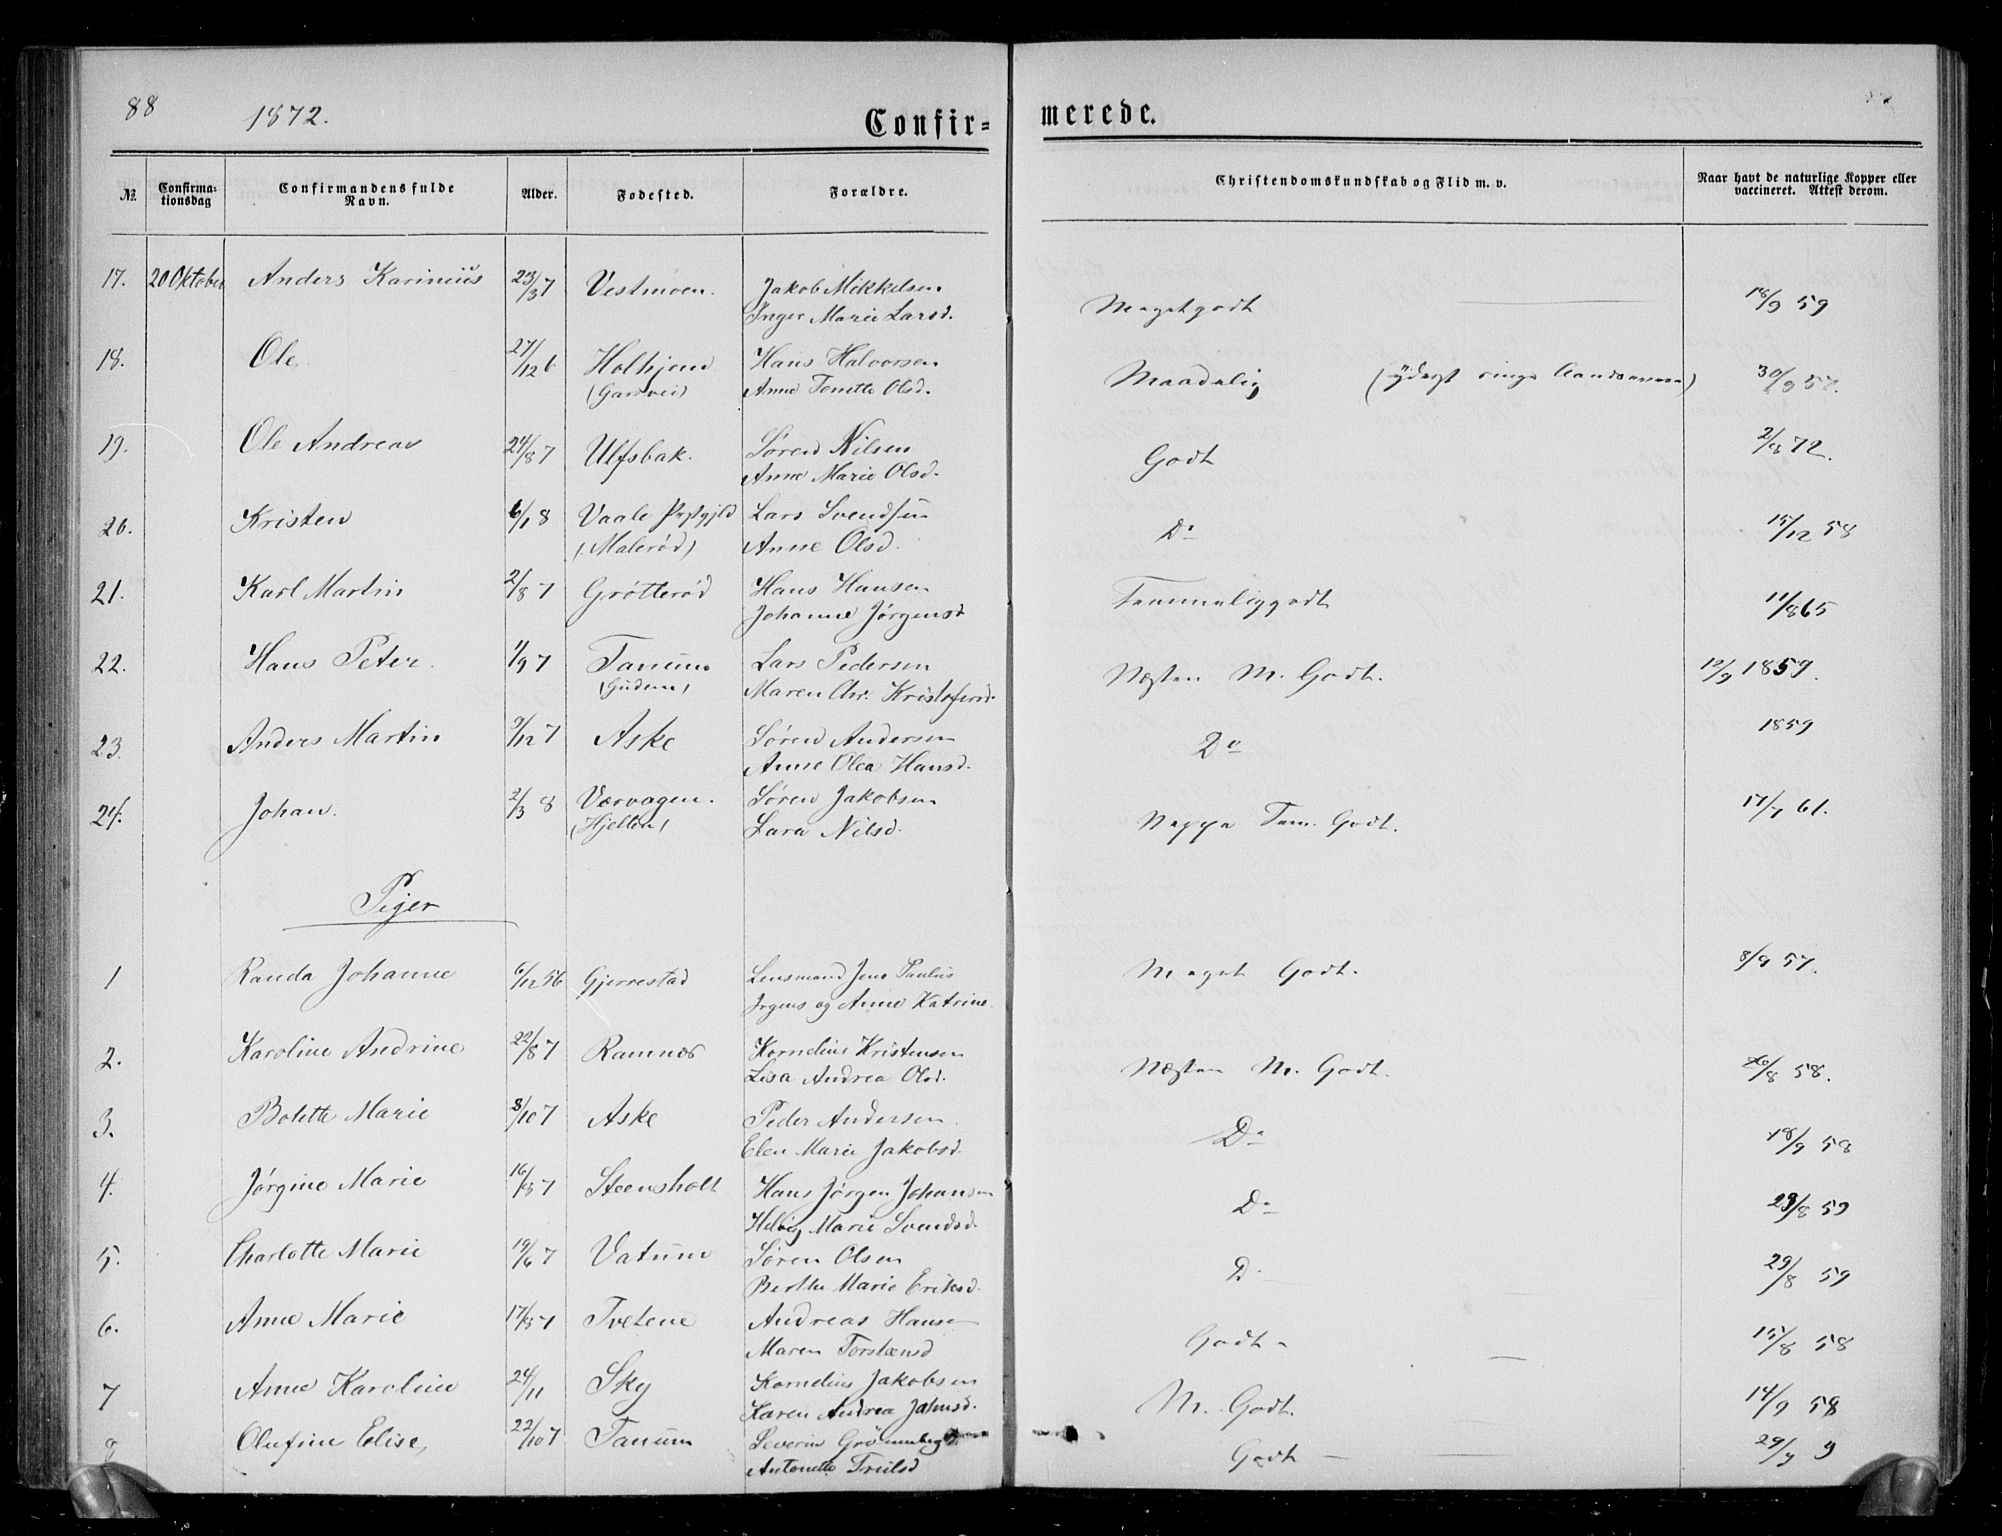 88 1872.
Confir=merede.
№ Confirma-tionsdag Confirmandens fulde Navn. Alder. Fødested. Forældre. Christendomskundskab og Flid m. v. Naar havt de naturlige Kopper eller vaccineret. Attest derom.
17. 20 Oktober Anders Karinius 23/3 7 Vestmoen. Jakob Mikkelsen Meget godt 18/9 59
Inger Marie Larsd.
18. Ole 27/12 6 Holhjem Hans Halvorsen Maadelig (yderst ringe Aandsevner) 30/9 57.
Anne Tonette Olsd.
19. Ole Andreas 24/8 7 Ulfsbak. Søren Nilsen Godt 2/8 72.
Anne Marie Olsd.
20. Kristen 6/1 8 Vaale Prstgjld Lars Svendsen Do 15/12 58
(Malerød) Anne Olsd.
21. Karl Martin 2/8 7 Grøtterød Hans Hansen Temmelig godt 11/8 65
Johanne Jørgensd
22. Hans Peter. 1/9 7 Tanum Lars Pedersen Næsten M. Godt. 12/9 1859.
(Gudem) Maren Chr. Kristofersd.
23. Anders Martin 9/12 7 Aske Søren Andersen Do 1859
Anne Olea Hansd.
24. Johan. 2/3 8 Værvagen. Søren Jakobsen Neppe Tem. Godt. 17/7 61.
(Hjelten) Lara Nilsd.
Piger
1 Randa Johanne 6/12 56 Gjerrestad Lensmand Jens Paulus Meget Godt. 8/9 57.
Irgens og Anne Katrine.
2. Karoline Andrine 22/8 7 Ramnes Kornelius Kristensen Næsten M. Godt. 26/8 58.
Lisa Andrea Olsd.
3. Bolette Marie 8/10 7 Aske Peder Andersen. Do 18/9 58
Elen Marie Jakobsd.
4. Jørgine Marie 16/8 7 Steensholt Hans Jørgen Johansen Do 23/8 59
Helvig Marie Svendsd.
5. Charlotte Marie 19/6 7 Vatum Søren Olsen D. 29/8 59
Berthe Marie Eriksd.
6. Anne Marie 17/8 7 Tvetene Andreas Hansen Godt 15/8 58
Maren Torstensd
7 Anne Karoline 24/11 Sky Kornelius Jakobsen M. Godt. 14/9 58
Karen Andrea Jahnsd.
8 Olufine Elise, 22/10 7 Tanum Severin Godt 29/9 9
Antonette Trulsd